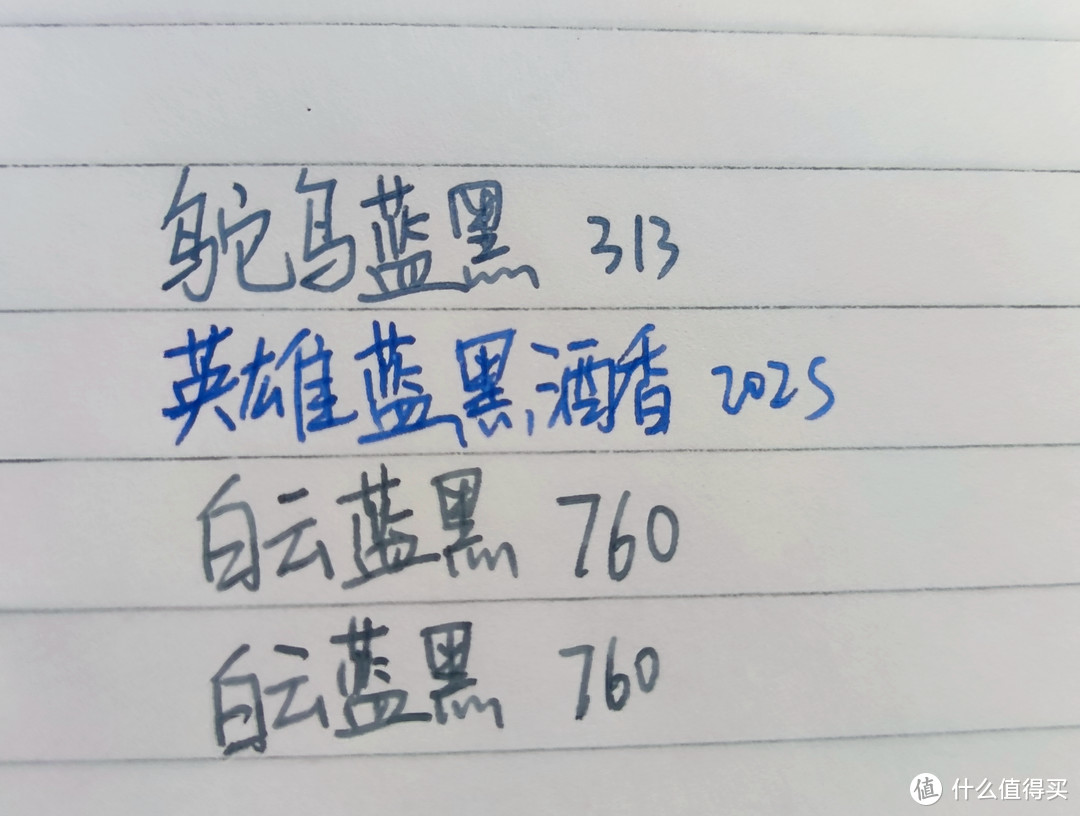 鸵鸟蓝黑 313
英雄蓝黑酒香 2025
白云蓝黑 760
白云蓝黑 760
值 什么值得买